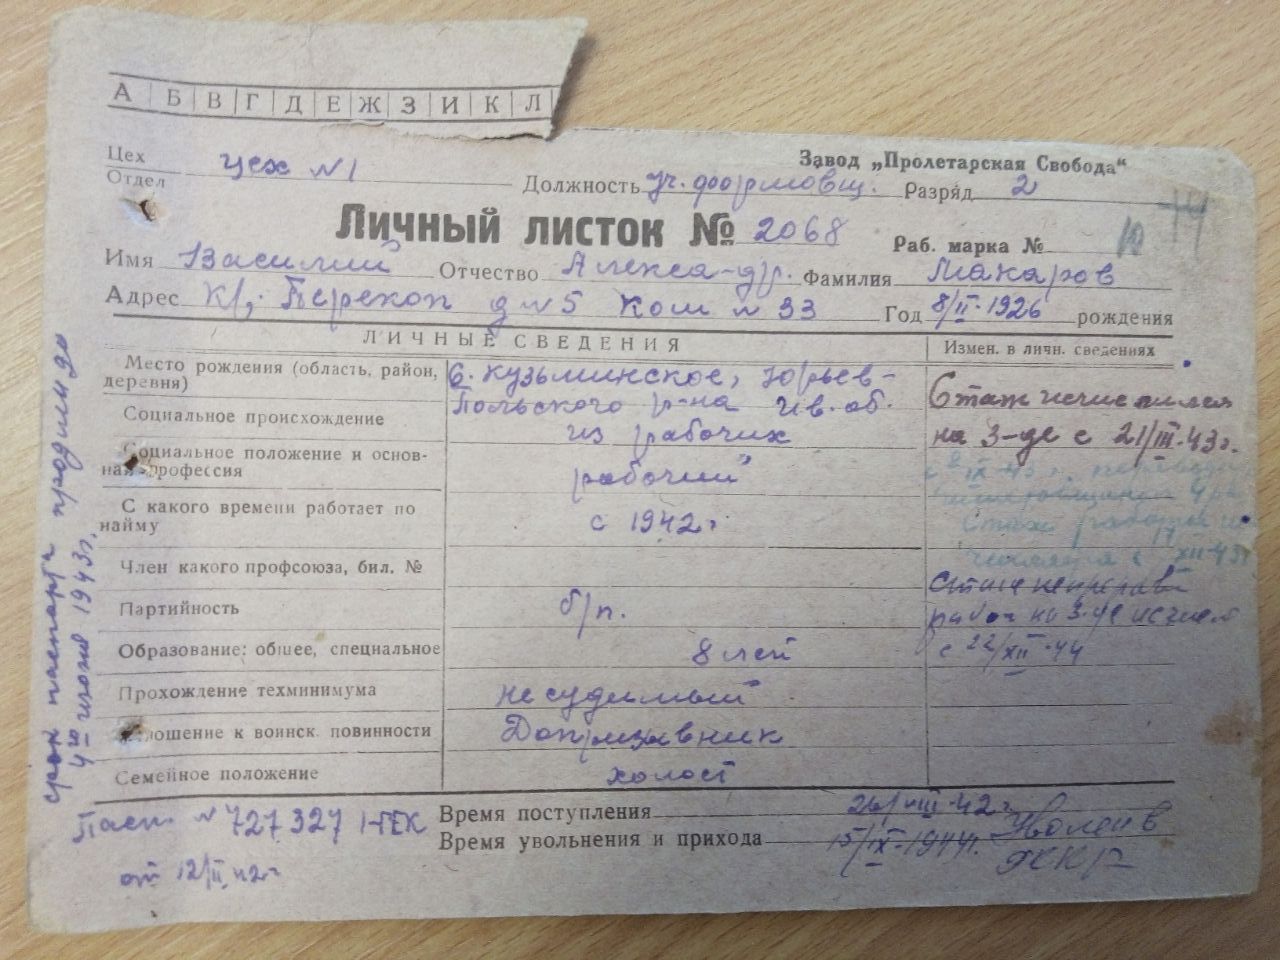 А Б В Г Д Е Ж З И К Л
Завод „Пролетарская Свобода“
Цех
Отдел
цех №1
Должность уч. формовщ. Разряд 2
Личный листок № 2068
Раб. марка № 10
Имя Василий Отчество Алекса-др. Фамилия Макаров
Адрес Кр. Перекоп д №5 Ком №33 Год 8/II-1926 рождения
ЛИЧНЫЕ СВЕДЕНИЯ
Измен. в личн. сведениях
Место рождения (область, район, деревня)
с. Кузьминское, Юрьев-
Польского р-на Ив. об.
Социальное происхождение из рабочих
Социальное положение и основная профессия рабочий
С какого времени работает по найму с 1942 г
Член какого профсоюза, бил. №
Партийность б/п.
Образование: общее, специальное 8 лет
Прохождение техминимума не судимый
Отношение к воинск. повинности Допризывник
Семейное положение холост
Стаж исчислялся
на з-де с 21/III-43 г.
Стаж работы
XII-43
Стаж непрерыв
работ на з-де исчисл
с 22/XII-44
Время поступления 26/VIII-42 г
Время увольнения и прихода 15/IX-1944 г. Уволен в
Пасп. № 727327 I-ГЕК
от 12/II 42 г
срок паспорта продлили до
4го июля 1943 г.